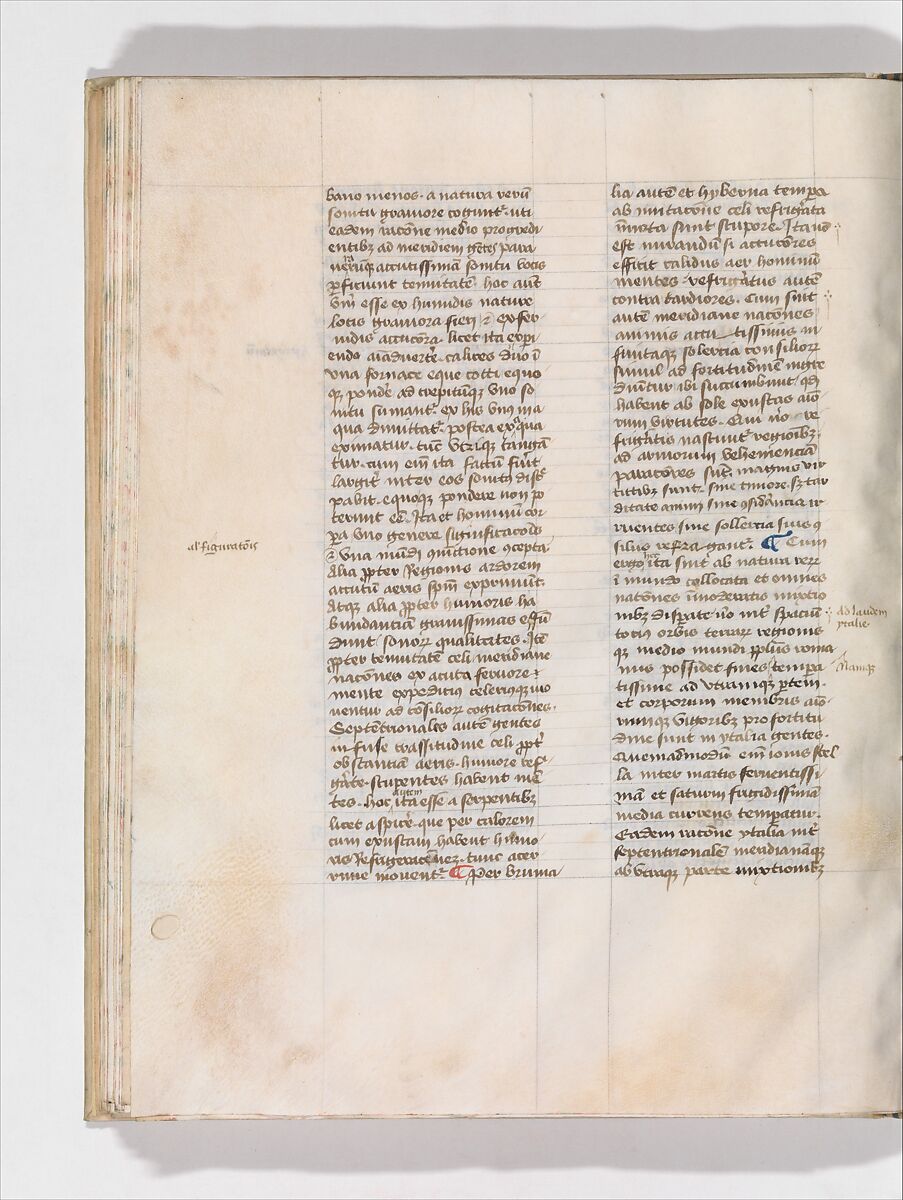 bano menos. a natura rerū
sonitu graviore cogunt᷑. uti
eadem racōne medio progredi
entibꝫ ad meridiem gētes para
accutissimā sonitu vocis
ꝑficiunt tenuitatē. hoc autē
esse ex humidis nature
locis graviora fieri ⁊ ex fer
vidis accuciora. licet ita exꝑi
endo aīaduerte. calices duo ī
vna fornace eque cocti equo
qꝫ pondē ad crepitūqꝫ vno so
nitu sumant᷑. ex his vnꝰ in a
qua dimittat᷑. postea ex aqua
eximatur. tūc vtriqꝫ tangā
tur. cum em̄ ita factū fūit
largit᷑ inter eos sonitꝰ discre
pabit. equoqꝫ pondere non po
terunt eē. Ita et hominū cor
pa vno genere significacōīs
⁊ vna mūdi ꝯiūctione ꝯcepta
Alia ꝓpter Regionis ardorem
accutū aeris spm̄ exprimūt.
Atqꝫ alia ꝓpter humoris ha
bundantiā gravissimas effū
dunt sonorꝝ qualitates. Itē
ꝓpter tenuitatē celi meridiane
nacōnes ex acuta fervore
mente expeditiꝰ celeriusqꝫ mo
uentur ad cōsiliorꝝ cogitacōnes.
Septētrionales autē gentes
infuse crassitudine celi ꝓpt᷑
obstantiā aeris. humore refri
gāte. stupentes habent mē
tes. hoc autem ita esse a serpentibꝫ
licet aspicē. que per calorem
cum exustam habent humo
ris Refrigeracōnez. tunc acer
rime movent᷑. ¶ Per bruma
lia autē et hyberna tempora
ab mutacōne celi refrigerata
īmota sunt stupore. Ita nō
est mirandū si accuciores
efficit calidus aer hominū
mentes. refrigeratus autē
contra tardiores. Cum sint
autē meridiane nacōnes
animis accutissimis in
finitaqꝫ solercia consiliorꝝ
simul ad fortitudinē ingre
diūtur ibi succumbunt. qꝫ
habent ab sole exustas aīo
rum virtutes. Qui v̄o re
frigeratis nascunt᷑ regionibꝫ
ad armorum vehementiā
paraciores sūt. magnis vir
tutibꝫ sunt. sine timore. sꝫ tar
ditate animi sine ꝯsidancia ir
ruentes sine sollercia suis ꝯ
silijs refragant᷑. ¶ Cum
ergo hec ita sint ab natura rerꝝ
ī mundo collocata et omnes
natōnes īmoderatis mixtio
nibꝫ disparate v̄o int᷑ spaciū
totiꝰ orbis terrarꝝ regionis
qꝫ medio mundi ꝓplus roma
nus possidet fines. tempa
tissime ad vtramqꝫ ꝑtem.
et corporum membris aīo
rumqꝫ vigoribꝫ pro fortitu
dine sunt in ytalia gentes.
Quemadmodū em̄ iouis stel
la inter martis feruentissi
mā et saturni frigidissimā
media currens temperatur.
Eadem racōne ytalia int᷑
septentrionalē meridianāqꝫ
ab vtraqꝫ parte mixtionibꝫ
al' figuratōis
ad laudem
ytalie
Namqꝫ